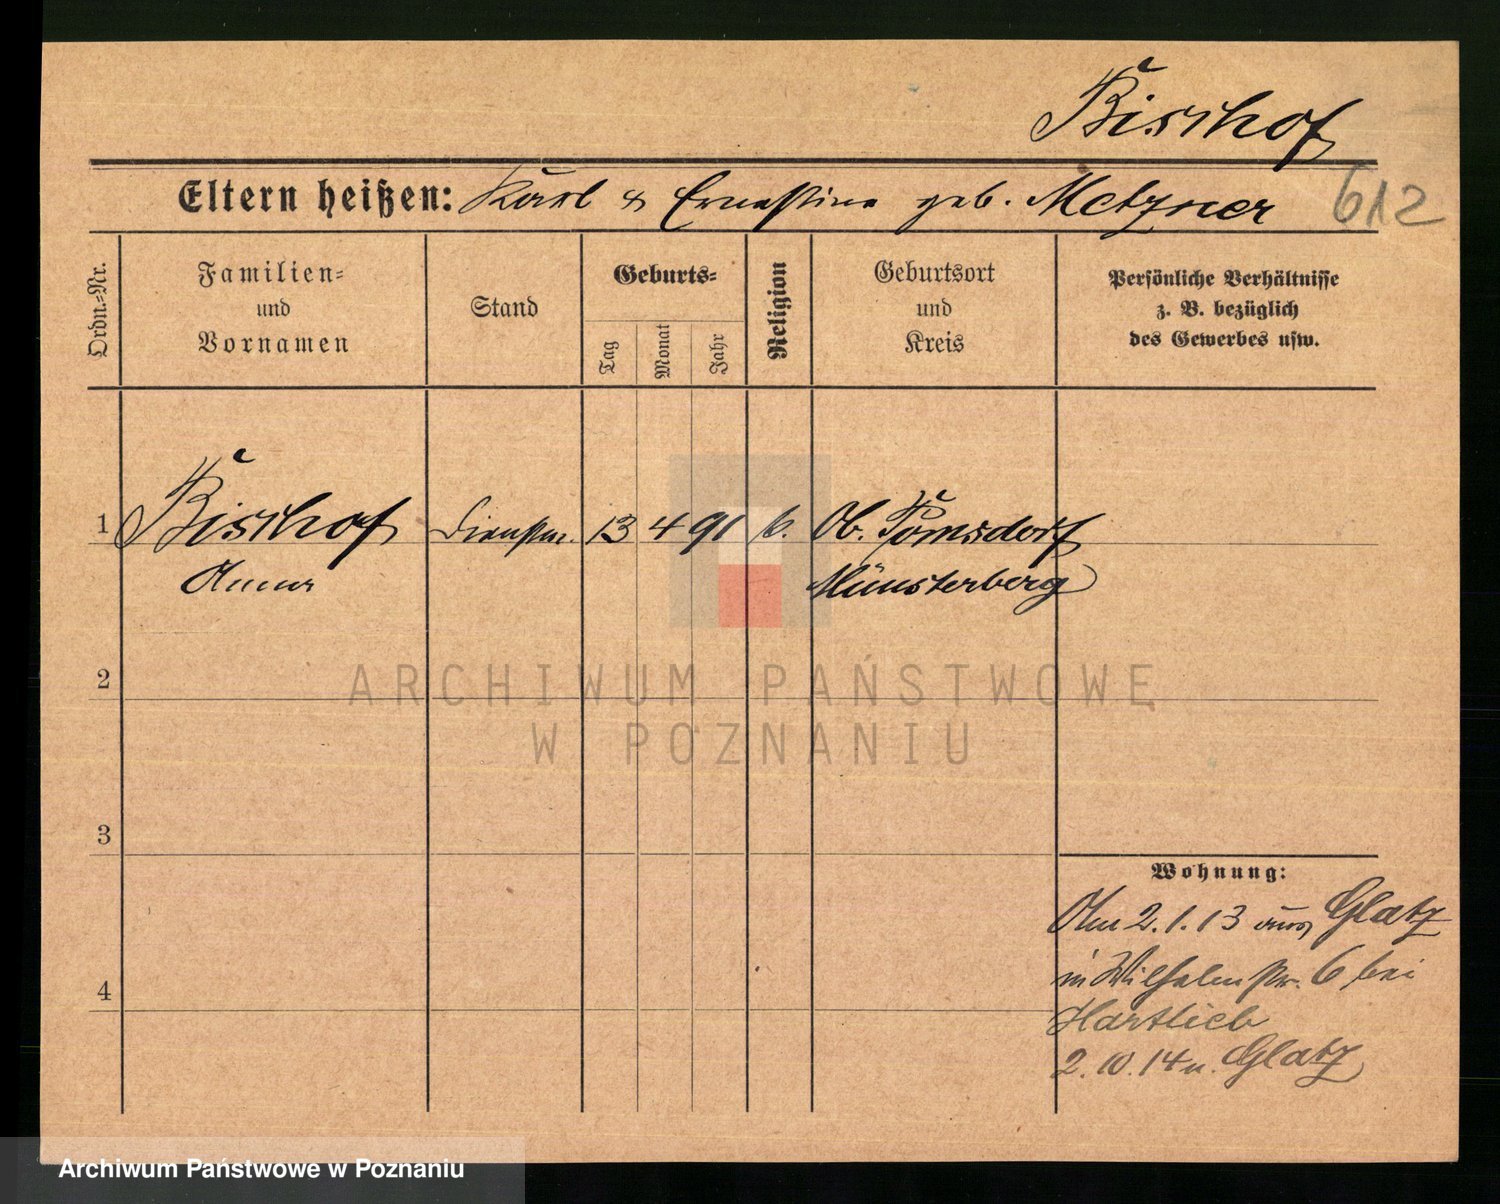 Bischof
Eltern heißen: Karl & Ernestine geb. Metzner 612
Ordn.-Nr.
Familien-
und
Vornamen
Stand
Geburts-
Tag
Monat
Jahr
Religion
Geburtsort
und
Kreis
Persönliche Verhältnisse
z. B. bezüglich
des Gewerbes usw.
1 Bischof Dienstm. 13 4 91 k. Ob. Pomsdorf
Anna Münsterberg
2
3
4
Wohnung:
Am 2.1.13 aus Glatz
in Wilhelmstr. 6 bei
Hartlieb
2.10.14 n. Glatz
ARCHIWUM PAŃSTWOWE
W POZNANIU
Archiwum Państwowe w Poznaniu